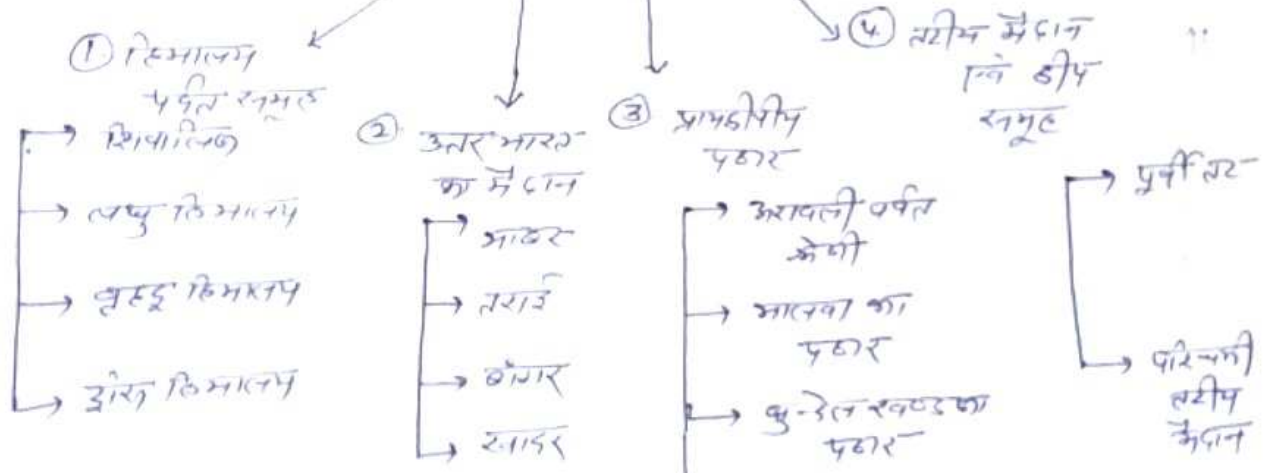 ① हिमालय
पर्वत समूह
→ शिवालिक
→ लघु हिमालय
→ वृहद् हिमालय
→ ट्रांस हिमालय
② उत्तर भारत
का मैदान
→ भाबर
→ तराई
→ बाँगर
→ खादर
③ प्रायद्वीपीय
पठार
→ अरावली पर्वत
श्रेणी
→ मालवा का
पठार
→ बुन्देलखण्ड का
पठार
④ तटीय मैदान
एवं द्वीप
समूह
→ पूर्वी तट
→ पश्चिमी
तटीय
मैदान